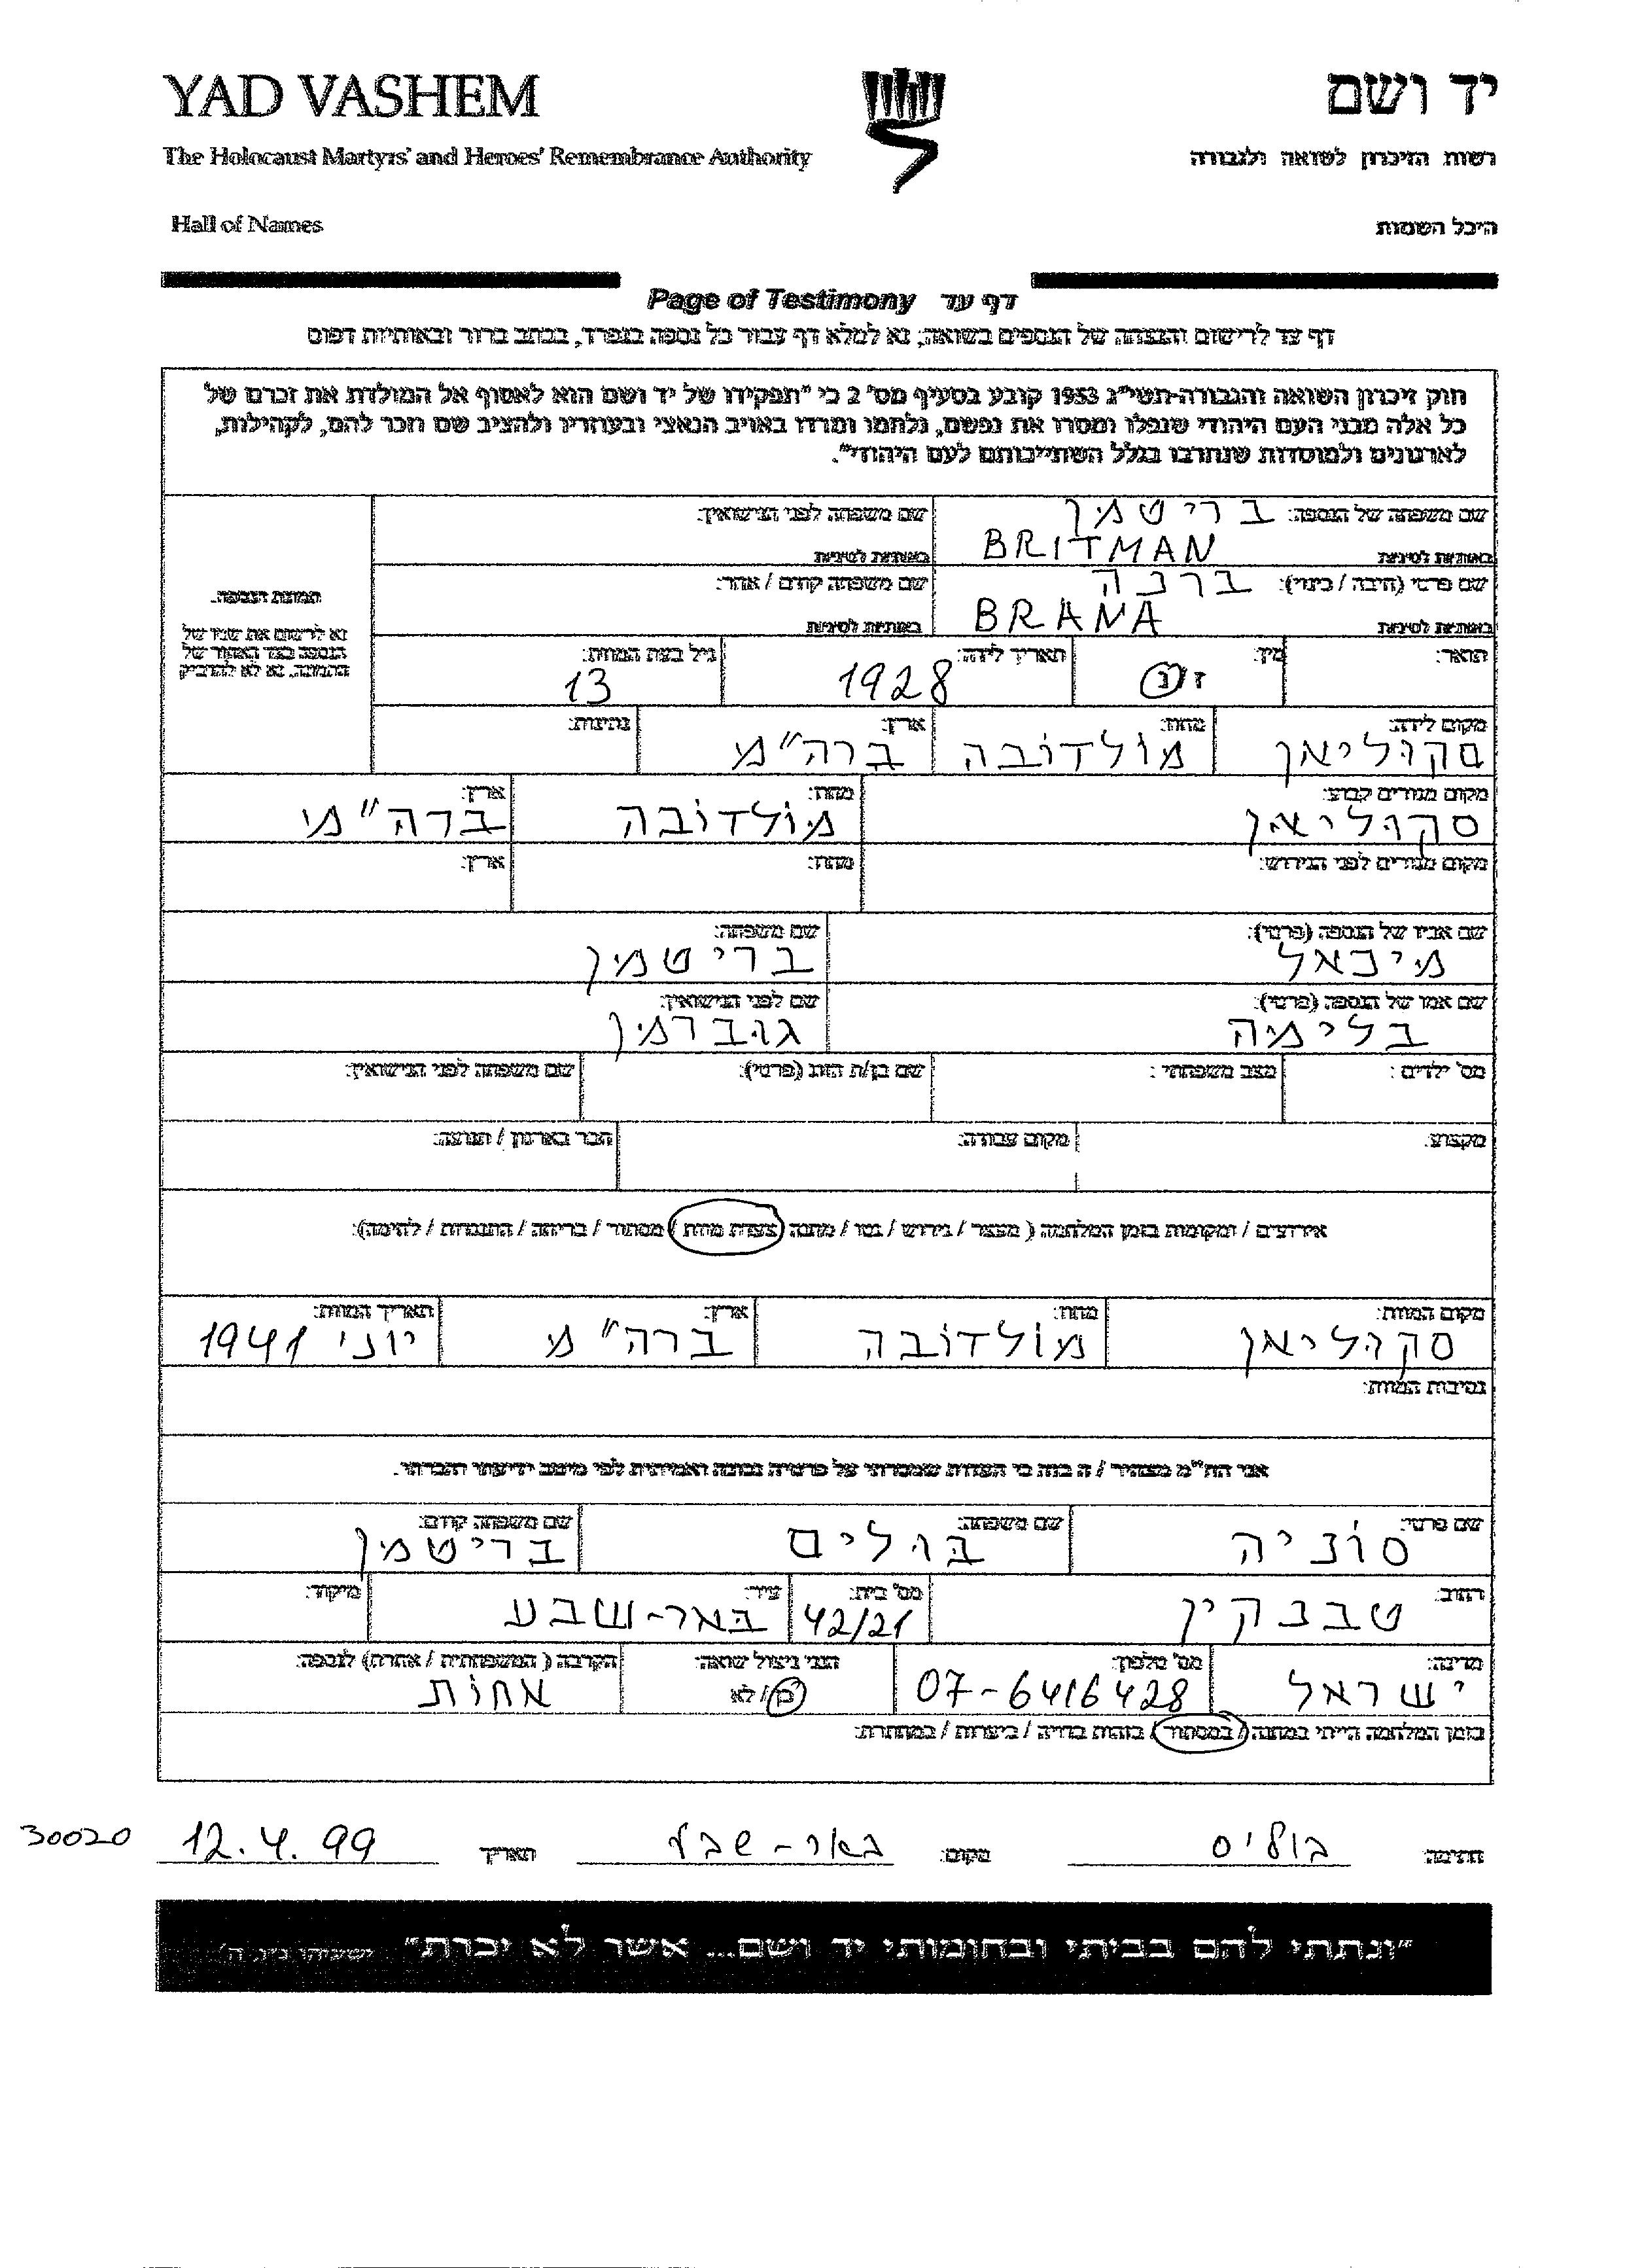 YAD VASHEM
יד ושם
The Holocaust Martyrs' and Heroes' Remembrance Authority
רשות הזיכרון לשואה ולגבורה
Hall of Names
היכל השמות
Page of Testimony דף עד
דף עד לרישום והנצחה של הנספים בשואה; נא למלא דף עבור כל נספה בנפרד, בכתב ברור ובאותיות דפוס
חוק זיכרון השואה והגבורה-תשי"ג 1953 קובע בסעיף מס' 2 כי "תפקידו של יד ושם הוא לאסוף אל המולדת את זכרם של
כל אלה מבני העם היהודי שנפלו ומסרו את נפשם, נלחמו ומרדו באויב הנאצי ובעוזריו ולהציב שם וזכר להם, לקהילות,
לארגונים ולמוסדות שנחרבו בגלל השתייכותם לעם היהודי".
שם משפחה של הנספה: בריטמן שם משפחה לפני הנישואין:
באותיות לטיניות BRITMAN באותיות לטיניות
שם פרטי (חיבה / כינוי): ברנה שם משפחה קודם / אחר:
באותיות לטיניות BRANA באותיות לטיניות
תמונת הנספה.
נא לרשום את שמו של
הנספה בצד האחורי של
התמונה. נא לא להדביק
תואר: מין: ז / נ תאריך לידה: 1928 גיל בעת המוות: 13
מקום לידה: מחוז: ארץ: נתינות:
סקוליאן מולדובה ברה"מ
מקום מגורים קבוע: מחוז: ארץ:
סקוליאן מולדובה ברה"מ
מקום מגורים לפני הגירוש: מחוז: ארץ:
שם אביו של הנספה (פרטי): שם משפחה:
מיכאל בריטמן
שם אמו של הנספה (פרטי): שם לפני הנישואין:
בלימה גוברמן
מס' ילדים: מצב משפחתי: שם בן/ת הזוג (פרטי): שם משפחה לפני הנישואין:
מקצוע: מקום עבודה: חבר בארגון / תנועה:
אירועים / ומקומות בזמן המלחמה ( מעצר / גירוש / גטו / מחנה צעדת מוות / מסתור / בריחה / התנגדות / לחימה):
מקום המוות: מחוז: ארץ: תאריך המוות:
סקוליאן מולדובה ברה"מ יוני 1941
נסיבות המוות:
אני הח"מ מצהיר / ה בזה כי העדות שמסרתי על פרטיה נכונה ואמיתית לפי מיטב ידיעתי והכרתי.
שם פרטי: שם משפחה: שם משפחה קודם:
סוניה בוליס בריטמן
רחוב: מס' בית: עיר: מיקוד:
טבנקין 42/21 באר-שבע
מדינה: מס' טלפון: הנני ניצול שואה: הקרבה ( המשפחתית / אחרת) לנספה:
ישראל 07-6416428 כן / לא אחות
בזמן המלחמה הייתי במחנה / במסתור / בזהות בדויה / ביערות / במחתרת:
חתימה: בוליס מקום: באר-שבע תאריך 12.4.99 30020
"ונתתי להם בביתי ובחומותי יד ושם... אשר לא יכרת" ישעיהו נו, ה'